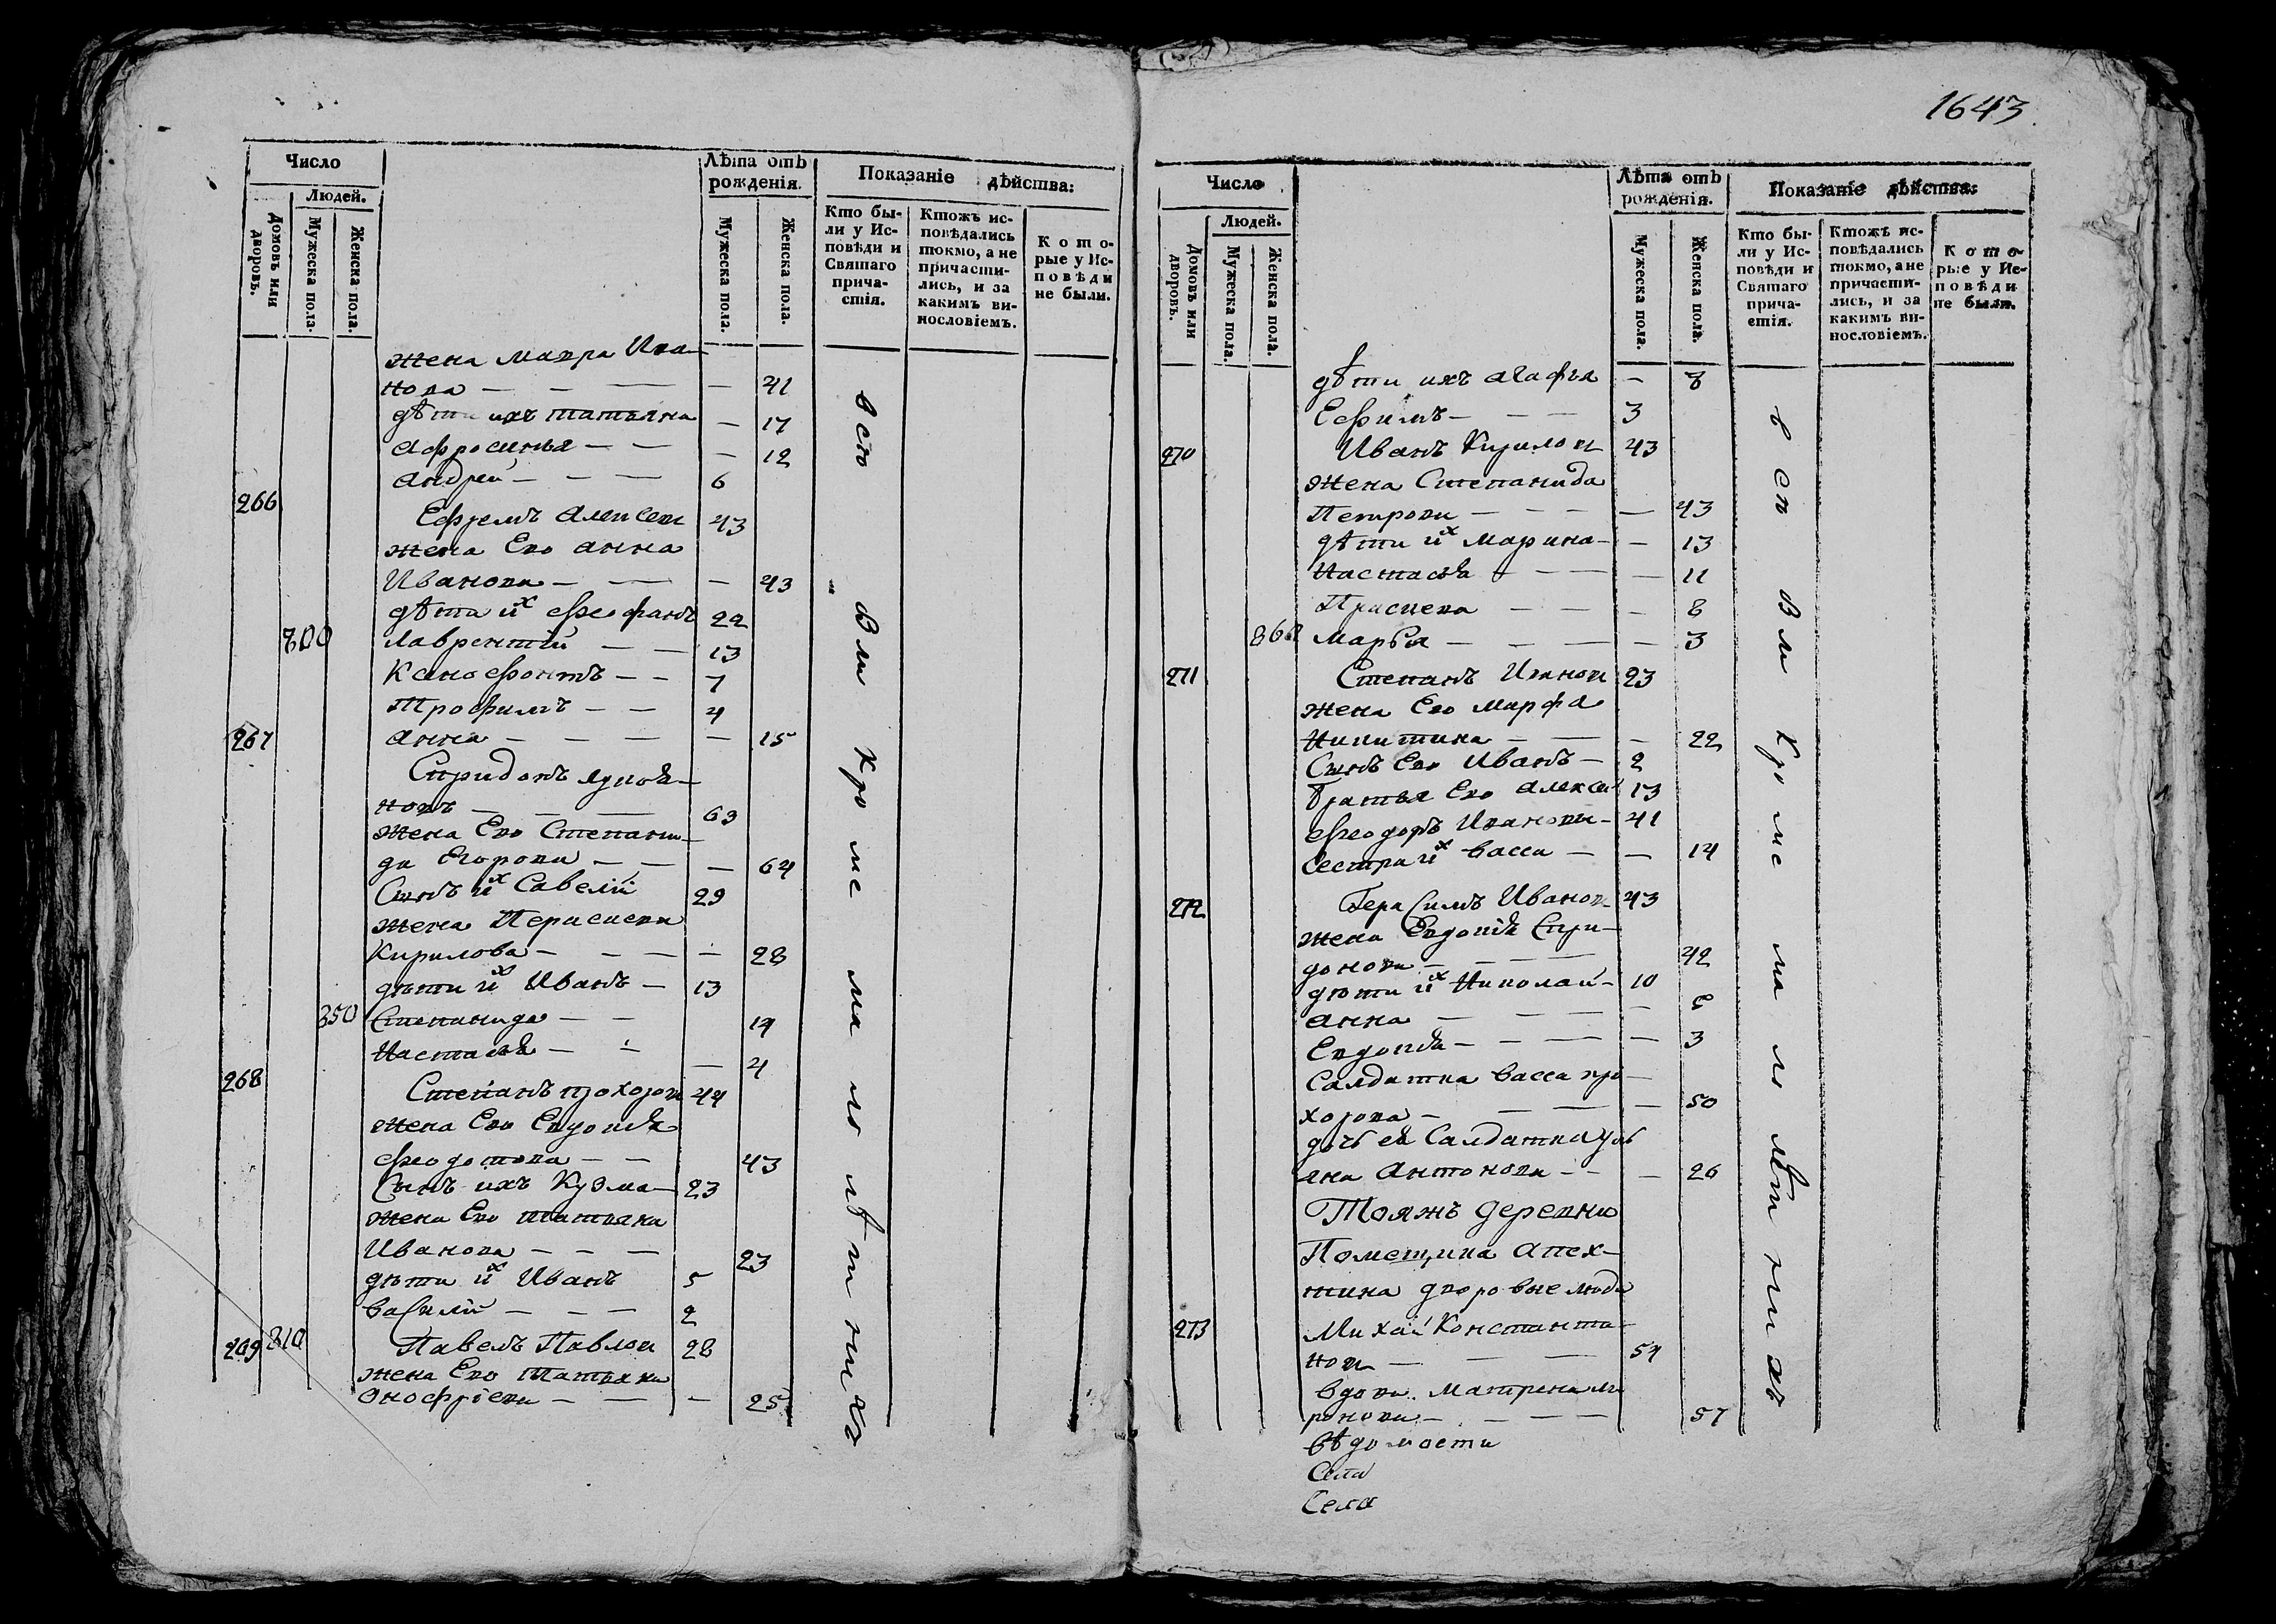 Число
Людей.
Домовъ или дворовъ.
Мужеска пола.
Женска пола.
Лѣта отъ рожденія.
Мужеска пола.
Женска пола.
Показаніе дѣйства:
Кто бы-
ли у Ис-
повѣди и
Святаго
прича-
стія.
Ктожъ ис-
повѣдались
токмо, а не
причасти-
лись, и за
какимъ ви-
нословіемъ.
Кото-
рые у Ис-
повѣди
не были.
жена мавра Ива-
нова — — — — 41
дѣти ихъ татьяна — 17
афросинья — — — 12
андрей — — — 6
266 Ефремъ алексеев 43
жена Ево анна
Иванова — — — 43
дѣти их феофанъ 22
300 лаврентій — — 13
Ксенофонтъ — — 7
Трофимъ — — 4
анна — — — — 15
267 Спиридонъ
новъ — — — 63
жена Ево Степани-
да Егорова — — — 64
Сынъ их Савелій 29
жена Параскева
Кирилова — — — — 28
дѣти их Иванъ — 13
350 Степанида — — 14
Настасья — — — 4
268 Степанъ прохоров 44
жена Ево Евдокія
феодотова — — 43
Сынъ ихъ Кузма — 23
жена Ево татьяна
Иванова — — — 23
дѣти их Иванъ 5
василій — — — 2
269 310 Павелъ Павлов 28
жена Ево татьяна
Онофріева — — — 25
всѣ были кроме малолѣтнихъ
1643
Число
Людей.
Домовъ или дворовъ.
Мужеска пола.
Женска пола.
Лѣта отъ рожденія.
Мужеска пола.
Женска пола.
Показаніе дѣйства:
Кто бы-
ли у Ис-
повѣди и
Святаго
прича-
стія.
Ктожъ ис-
повѣдались
токмо, а не
причасти-
лись, и за
какимъ ви-
нословіемъ.
Кото-
рые у Ис-
повѣди
не были.
дѣти ихъ агафья — 8
Ефимъ — — — 3
270 Иванъ Кирилов 43
жена Степанида
Петрова — — — — 43
дѣти их марина — — 13
Настасья — — — 11
Праскева — — — 8
360 марья — — — — 3
271 Степанъ Иванов 23
жена Ево марфа
Никитина — — — 22
Сынъ Ево Иванъ — 2
братья Ево алексей 13
феодоръ Ивановы — 11
сестра их васса — — 14
272 Герасимъ Иванов 43
жена Евдокія Спири-
донова — — — 42
дѣти их Николай — 10
анна — — — — 8
Евдокія — — — — 3
Салдатка васса про-
хорова — — — — 50
дочь ея Салдатка уль
яна антонова — — — 26
Тояжъ деревни
Помещика апех-
тина дворовые люди
273 Михай Константи-
нов — — — 54
вдова матрена ми
ронова — — — — 57
вѣдомости
Села
Села
всѣ были кроме малолѣтнихъ